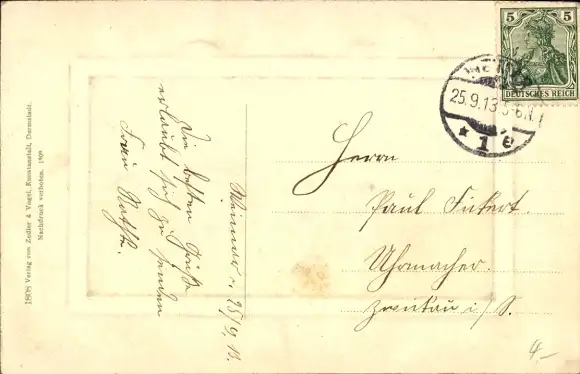 5 5
DEUTSCHES REICH
25.9.13 5-6 N.
* 1 e
Herrn
Paul Fickert.
Uhrmacher.
Zwickau i/S.
25/9. 13.
Die besten Grüße
erlaubt sich zu senden
Frau
1808 Verlag von Zedler & Vogel, Kunstanstalt, Darmstadt.
Nachdruck verboten. 1909
4,-